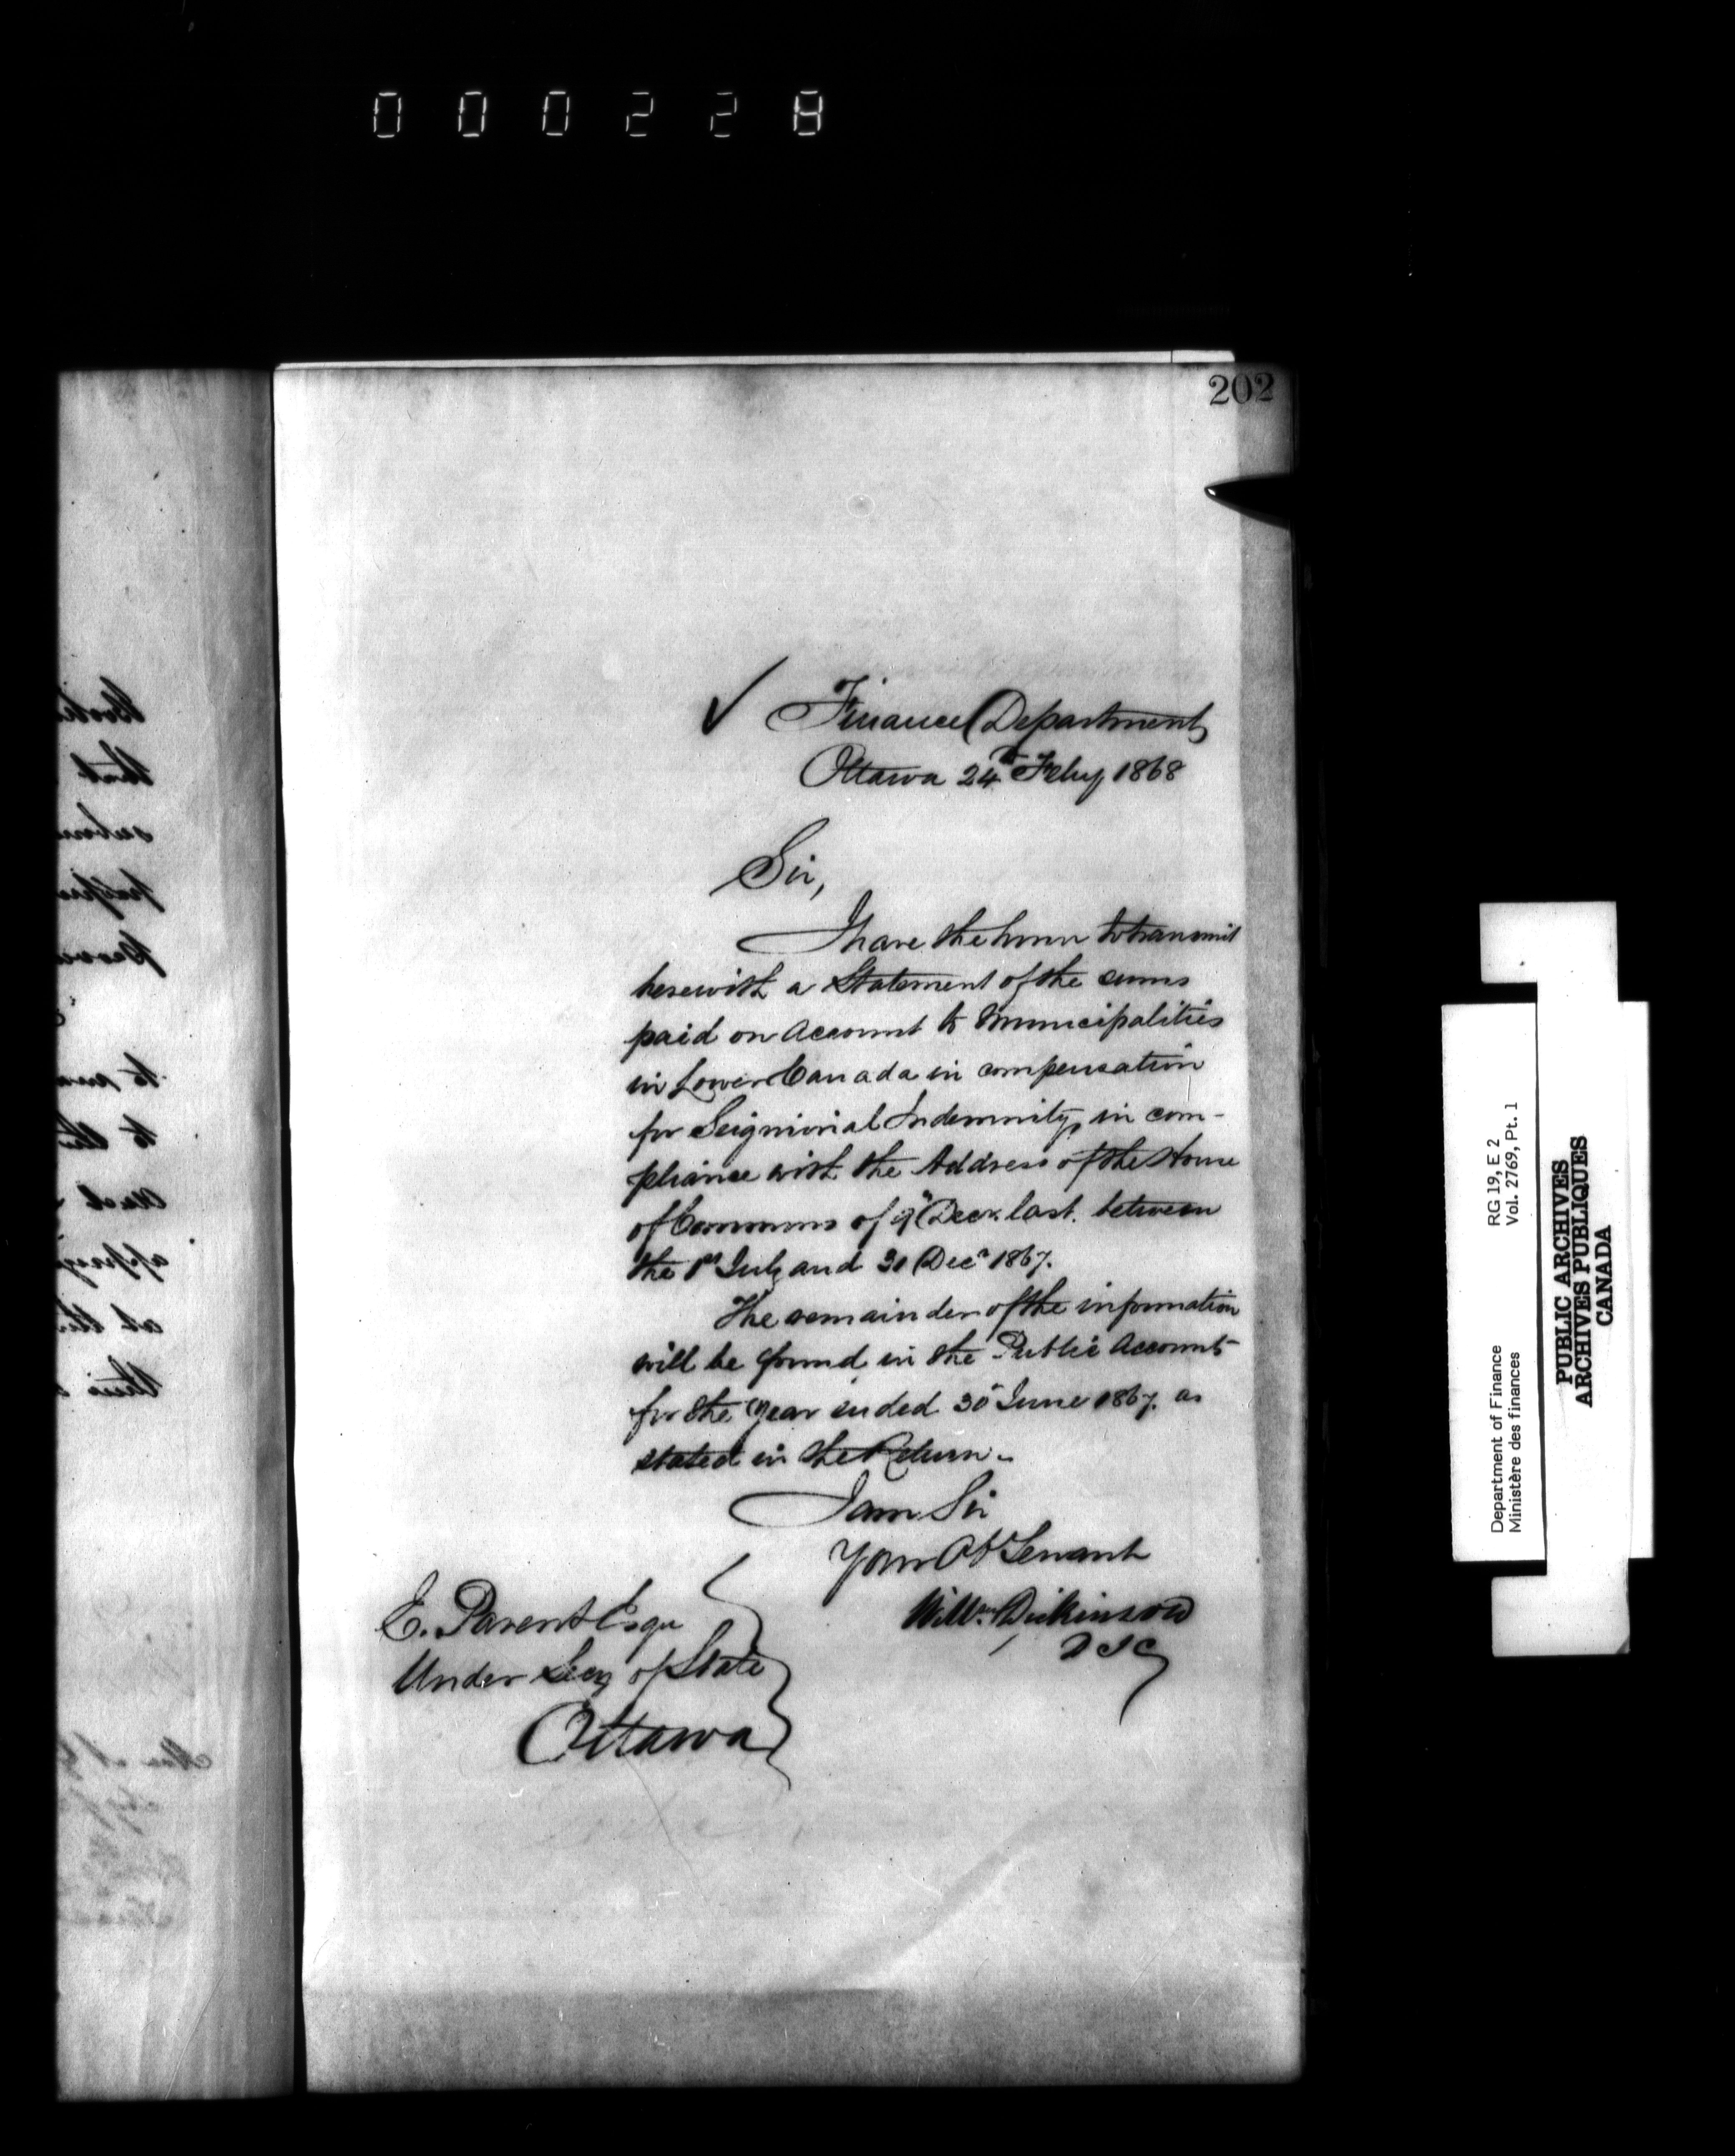 000228
202
✓ Finance Department
Ottawa 24th Feby 1868
Sir,
I have the honor to transmit
herewith a Statement of the sums
paid on Account to Municipalities
in Lower Canada in compensation
for Seigniorial Indemnity, in com-
pliance with the Address of the House
of Commons of 9" Decr last. between
the 1st July and 31 Decr 1867.
The remainder of the information
will be found in the Public Accounts
for the Year ended 30" June 1867. as
stated in the Return.
I am Sir
Your Ob Servant
Willm. Dickinson
D I G
E. Parent Esqu
Under Secy of State
Ottawa
Department of Finance RG 19, E 2
Ministère des finances Vol. 2769, Pt. 1
PUBLIC ARCHIVES
ARCHIVES PUBLIQUES
CANADA